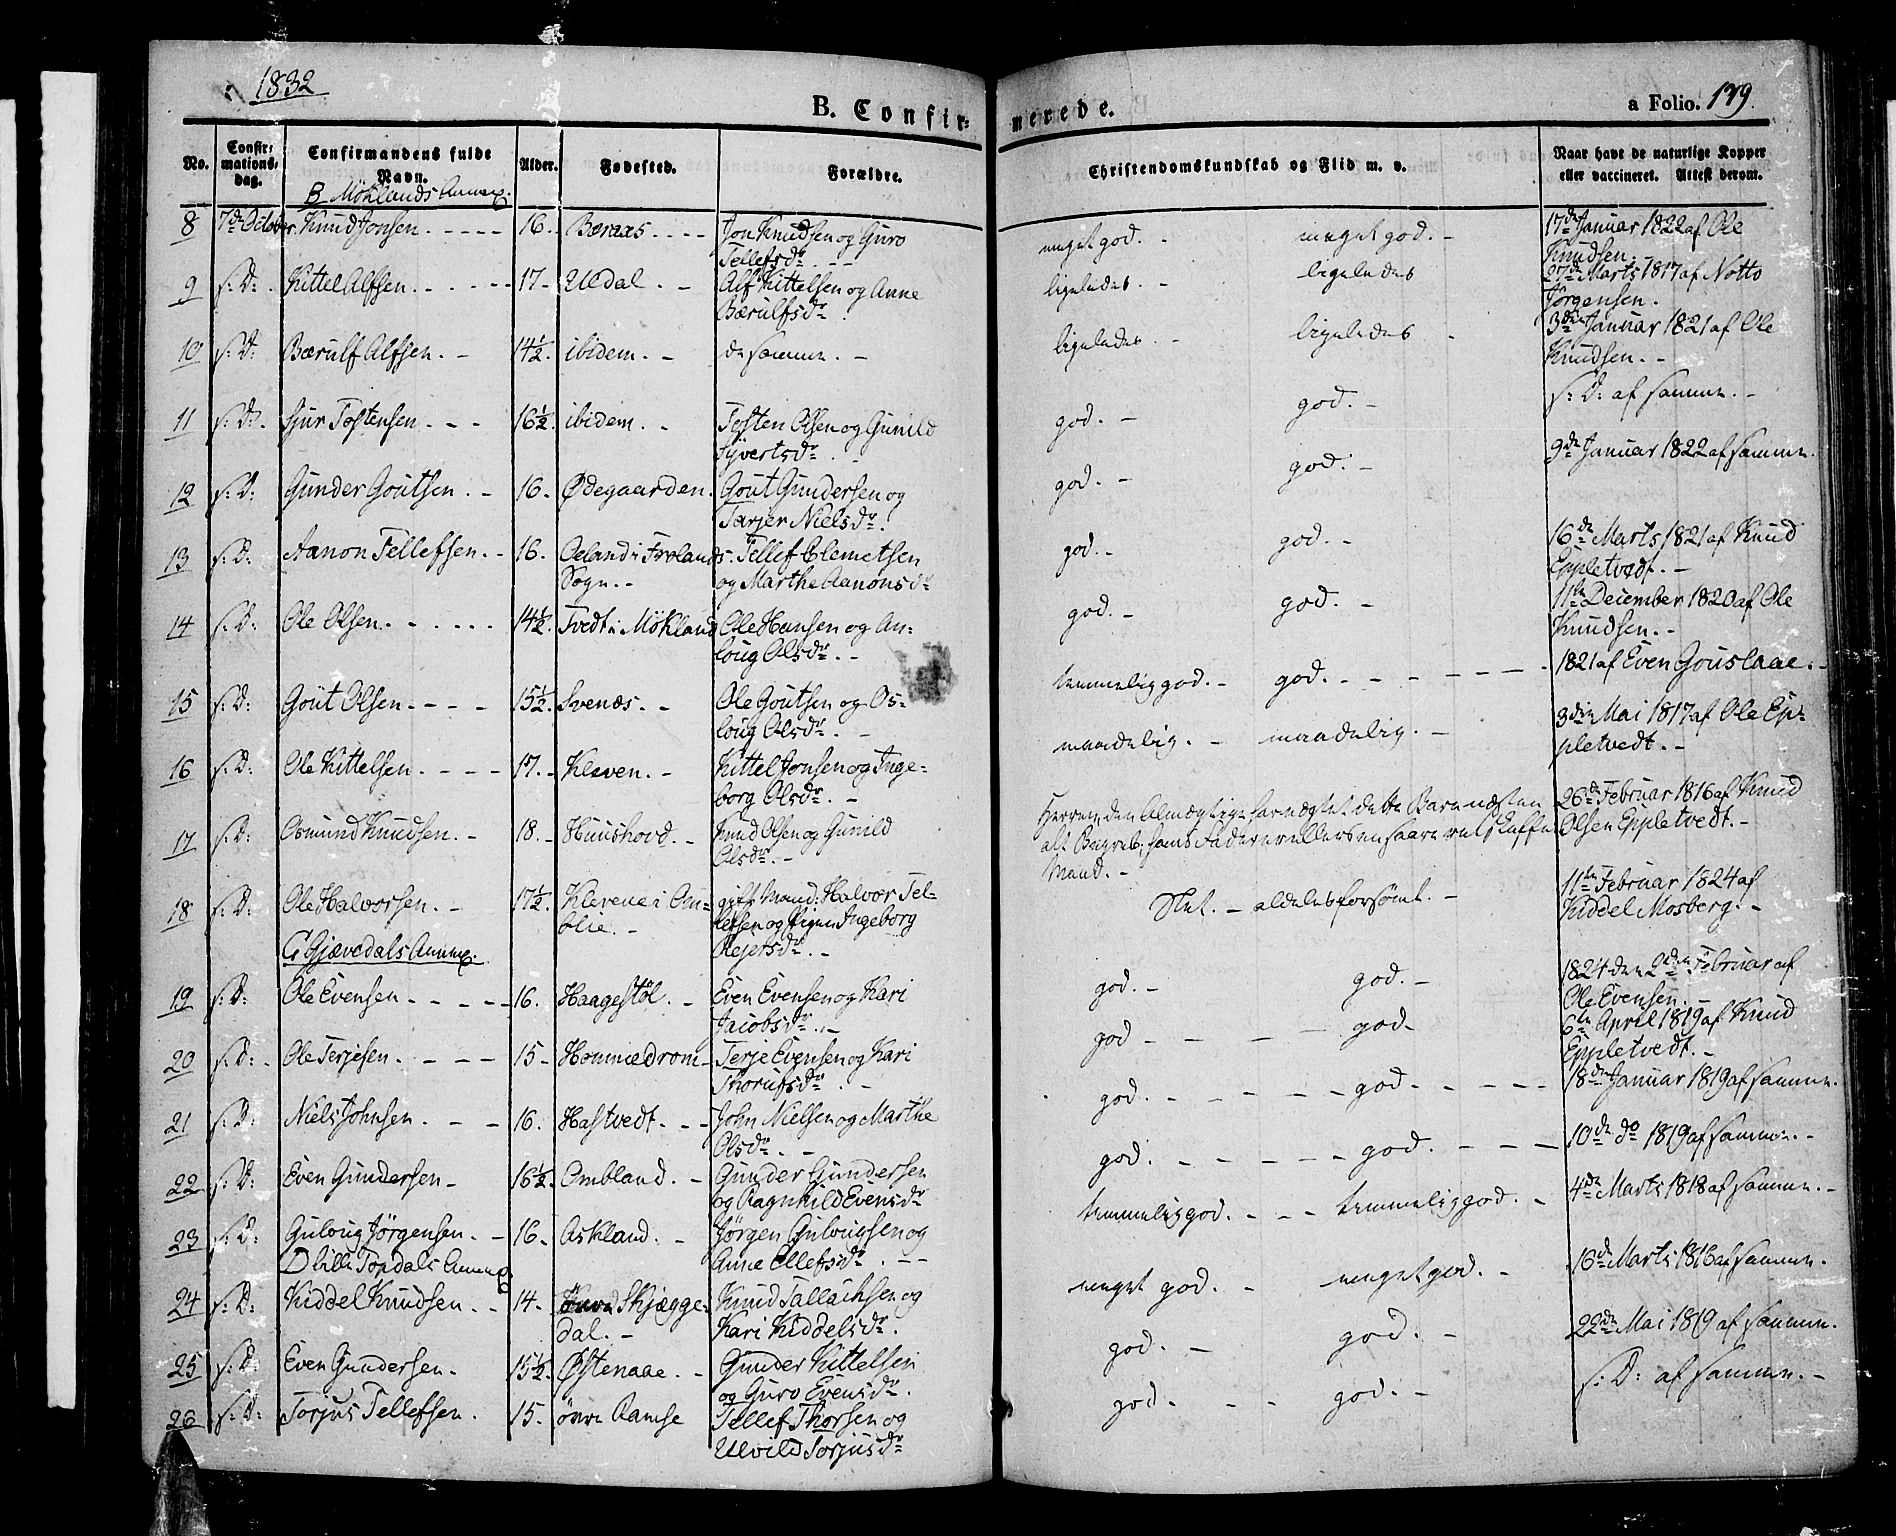 1832
B. Confir=
merede.
a Folio. 179.
No.
Confir=
mations=
dag.
Confirmandens fulde
Navn.
Alder.
Fødested.
Forældre.
Christendomskundskab og Flid m. v.
Naar havt de naturlige Kopper
eller vaccineret. Attest derom.
B Möklands Annex.
8 7de October. Knud Jonsen. 16. Bæraas. Jon Knudsen og Guro
Tellefsdr. meget god. meget god. 17de Januar 1822 af Ole
Knudsen.
9 s: D: Kittel Alfsen. 17 Uldal. Alf Kittelsen og Anne
Bærulfsdr. ligeledes. ligeledes 27de Marts 1817 af Notto
Jörgensen.
10 s: D: Bærulf Alfsen. 14½. ibidem. de samme. ligeledes. ligeledes 3die Januar 1821 af Ole
Knudsen.
11 s: D: Sjur Tostensen. 16½. ibidem. Tosten Olsen og Gunild
Syvertsdr. god. god. s: D: af samme.
12 s: D: Gunder Goutsen. 16. Ødegaarden. Gout Gundersen og
Tarjer Nielsdr. god. god. 9de Januar 1822 af samme.
13 s: D: Aanon Tellefsen. 16. Oeland i Frolands
Sogn. Tellef Clemetsen
og Marthe Aanonsdr god. god. 16de Marts 1821 af Knud
Eppletvedt.
14 s: D: Ole Olsen. 14½. Tvedt i Mökland Ole Hansen og An=
loug Olsdr. god. god. 11te December 1820 af Ole
Knudsen.
15 s: D: Gout Olsen. 15½. Svenæs. Ole Goutsen og Os=
loug Olsdr. temmelig god. god. 1821 af Even Gouslaae.
16 s: D: Ole Kittelsen. 17. Kleven. Kittel Jonsen og Inge=
borg Olsdr. maadelig. maadelig. 3die Mai 1817 af Ole Ep=
pletvedt.
17 s: D: Osmund Knudsen. 18. Huushovd. Knud Olsen og Gunild
Olsdr. Herren, den Almægtige har nægtet dette Barn næsten
alt Begreb; hans Fader er ellers en saare retskaffen
Mand. 26de Februar 1816 af Knud
Olsen Eppletvedt.
18 s: D: Ole Halvorsen. 17½. Klevene i Om=
blie. gift Mand: Halvor Tel=
lefsen og Pigen Ingeborg
Rejersdr. Slet. aldeles forsömt. 11te Februar 1824 af
Kiddel Mosberg.
C Gjævedals Annex.
19 s: D: Ole Evensen 16. Haagestöl. Even Evensen og Kari
Jacobsdr. god. god. 1824 den 2den Februar af
Ole Evensen.
20 s: D: Ole Terjesen. 15 Hommedrom Terje Evensen og Kari
Thorufsdr. god god 6te April 1819 af Knud
Eppletvedt.
21 s: D: Niels Johnsen. 16. Hastvedt. John Nielsen og Marthe
Olsdr. god. god. 18de Januar 1819 af samme.
22 s: D: Even Gundersen 16½. Ombland. Gunder Gundersen
og Ragnhild Evensdr god. god. 10de do 1819 af samme.
23 s: D: Guloug Jörgensen. 16. Askland. Jörgen Gulougsen og
Anne Ellefsdr. temmelig god. temmelig god. 4de Marts 1818 af samme.
D lille Tovdals Annex
24 s: D: Kiddel Knudsen. 14. övre Skjægge=
dal. Knud Tallachsen og
Kari Kiddelsdr. meget god. meget god. 16de Marts 1816 af samme.
25 s: D: Even Gundersen. 15½. Östenaae. Gunder Kittelsen
og Guro Evensdr. god. god. 22de Mai 1819 af samme.
26 s: D: Torjus Tellefsen. 15. övre Ramse Tellef Thorsen og
Ulvild Torjusdr god. god. s: D: af samme.